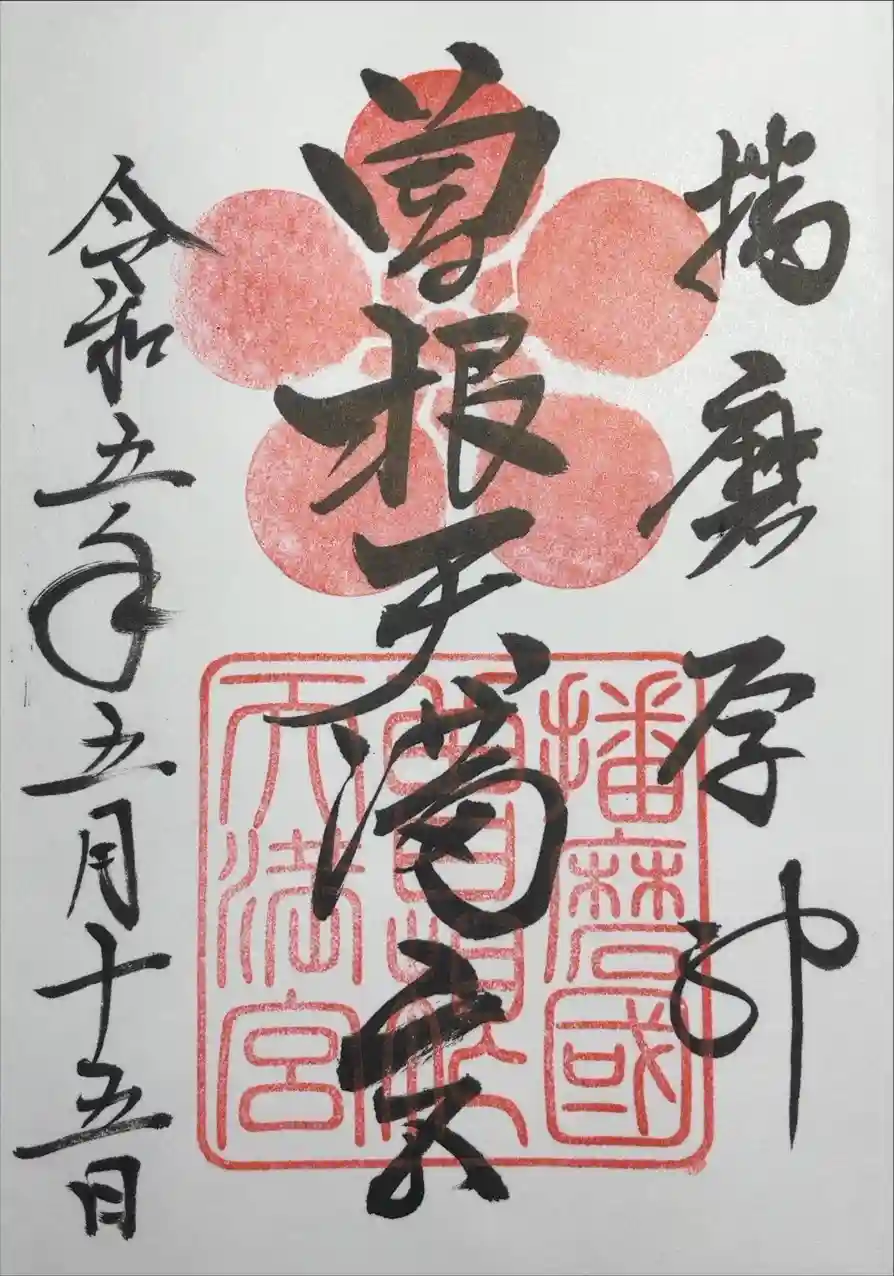 播磨
曽根天満宮
令和五年五月十五日
播磨國
曽根
天満宮